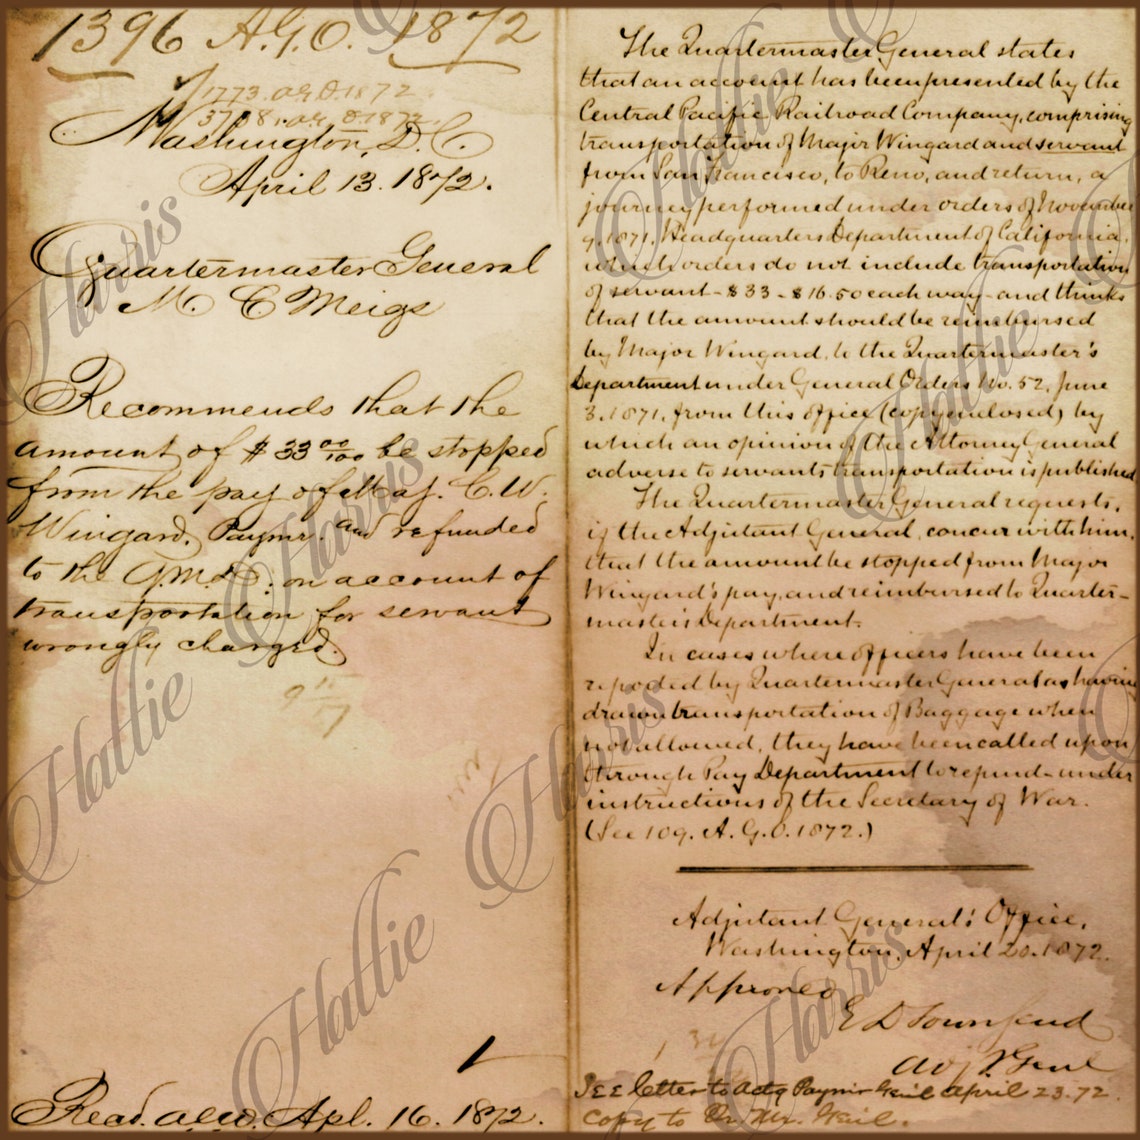 1396 A.G.O. 1872
1773. A.G.O. 1872.
A.G.O. 1872.
Washington, D.C.
April 13. 1872.
Quartermaster General
M. C. Meigs
Recommends that the
amount of $33 00/100 be stopped
from the pay of Maj. C. W.
Wingard, Paymr. and refunded
to the Q.M.D. on account of
transportation for servant
wrongly charged.
Read. Apl. 16. 1872.
The Quartermaster General states
that an account has been presented by the
Central Pacific Railroad Company, comprising
transportation of Major Wingard and servant
from San Francisco, to Reno, and return, a
journey performed under orders of November
9. 1871. Headquarters Department of California,
which orders do not include transportation
of servant - $33 - $16.50 each way - and thinks
that the amount should be reimbursed
by Major Wingard, to the Quartermaster's
Department under General Orders No. 52, June
3. 1871. from this office (copy enclosed) by
which an opinion of the Attorney General
adverse to servants transportation is published
The Quartermaster General requests,
if the Adjutant General, concur with him,
that the amount be stopped from Major
Wingard's pay, and reimbursed to Quarter-
master's Department.
In cases where officers have been
repoded by Quartermaster General as having
drawn transportation of Baggage when
not allowed, they have been called upon
through Pay Department to refund - under
instructions of the Secretary of War.
(See 109. A.G.O. 1872.)
Adjutant General's Office,
Washington, April 20. 1872.
Approved
E D Townsend
Adjt Genl
See letter to Actg Paymr Genl April 23. 72
Copy to Qr. Mr. Genl.
Hattie Harris
Hattie Harris
Hattie Harris
Hattie Harris